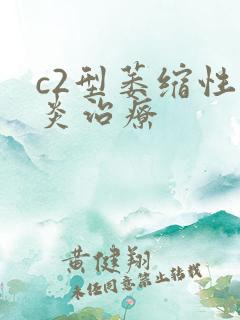 c2型萎缩性
炎治疗
黄健翔
未经同意禁止转载